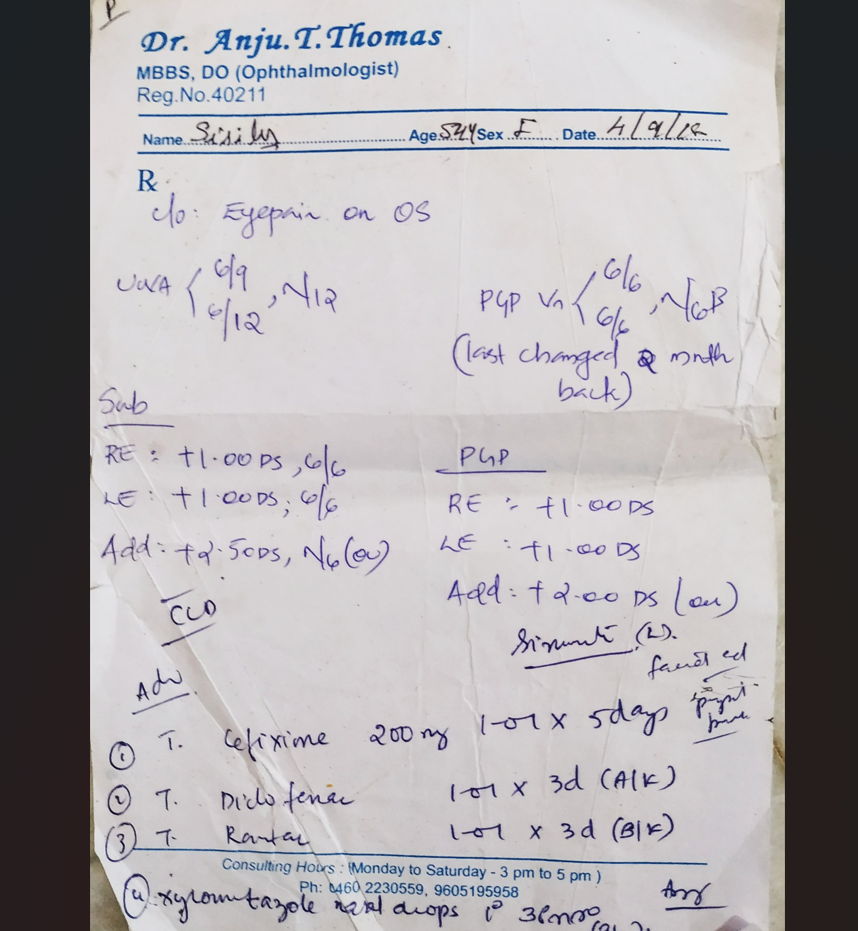 P
Dr. Anju.T.Thomas
MBBS, DO (Ophthalmologist)
Reg.No.40211
Name Sisily Age 54y Sex F Date 4/9/18
Rx
c/o: Eyepain on OS
UCVA 6/9
6/12, N12
PGP Vn 6/6
6/6, N6B
(last changed 2 month
back)
Sub
RE: +1.00DS, 6/6
LE: +1.00DS; 6/6
Add: +2.50DS, N6 (ou)
PGP
RE :- +1.00DS
LE : +1.00 DS
Add: +2.00 DS (ou)
CCD
(L).
Adv
① T. Cefixime 200mg 1-0-1 x 5days
② T. Diclofenac 1-0-1 x 3d (A/F)
③ T. Rantac 1-0-1 x 3d (B/F)
Consulting Hours : (Monday to Saturday - 3 pm to 5 pm )
Ph: 0460 2230559, 9605195958
④ xylometazole nasal drops